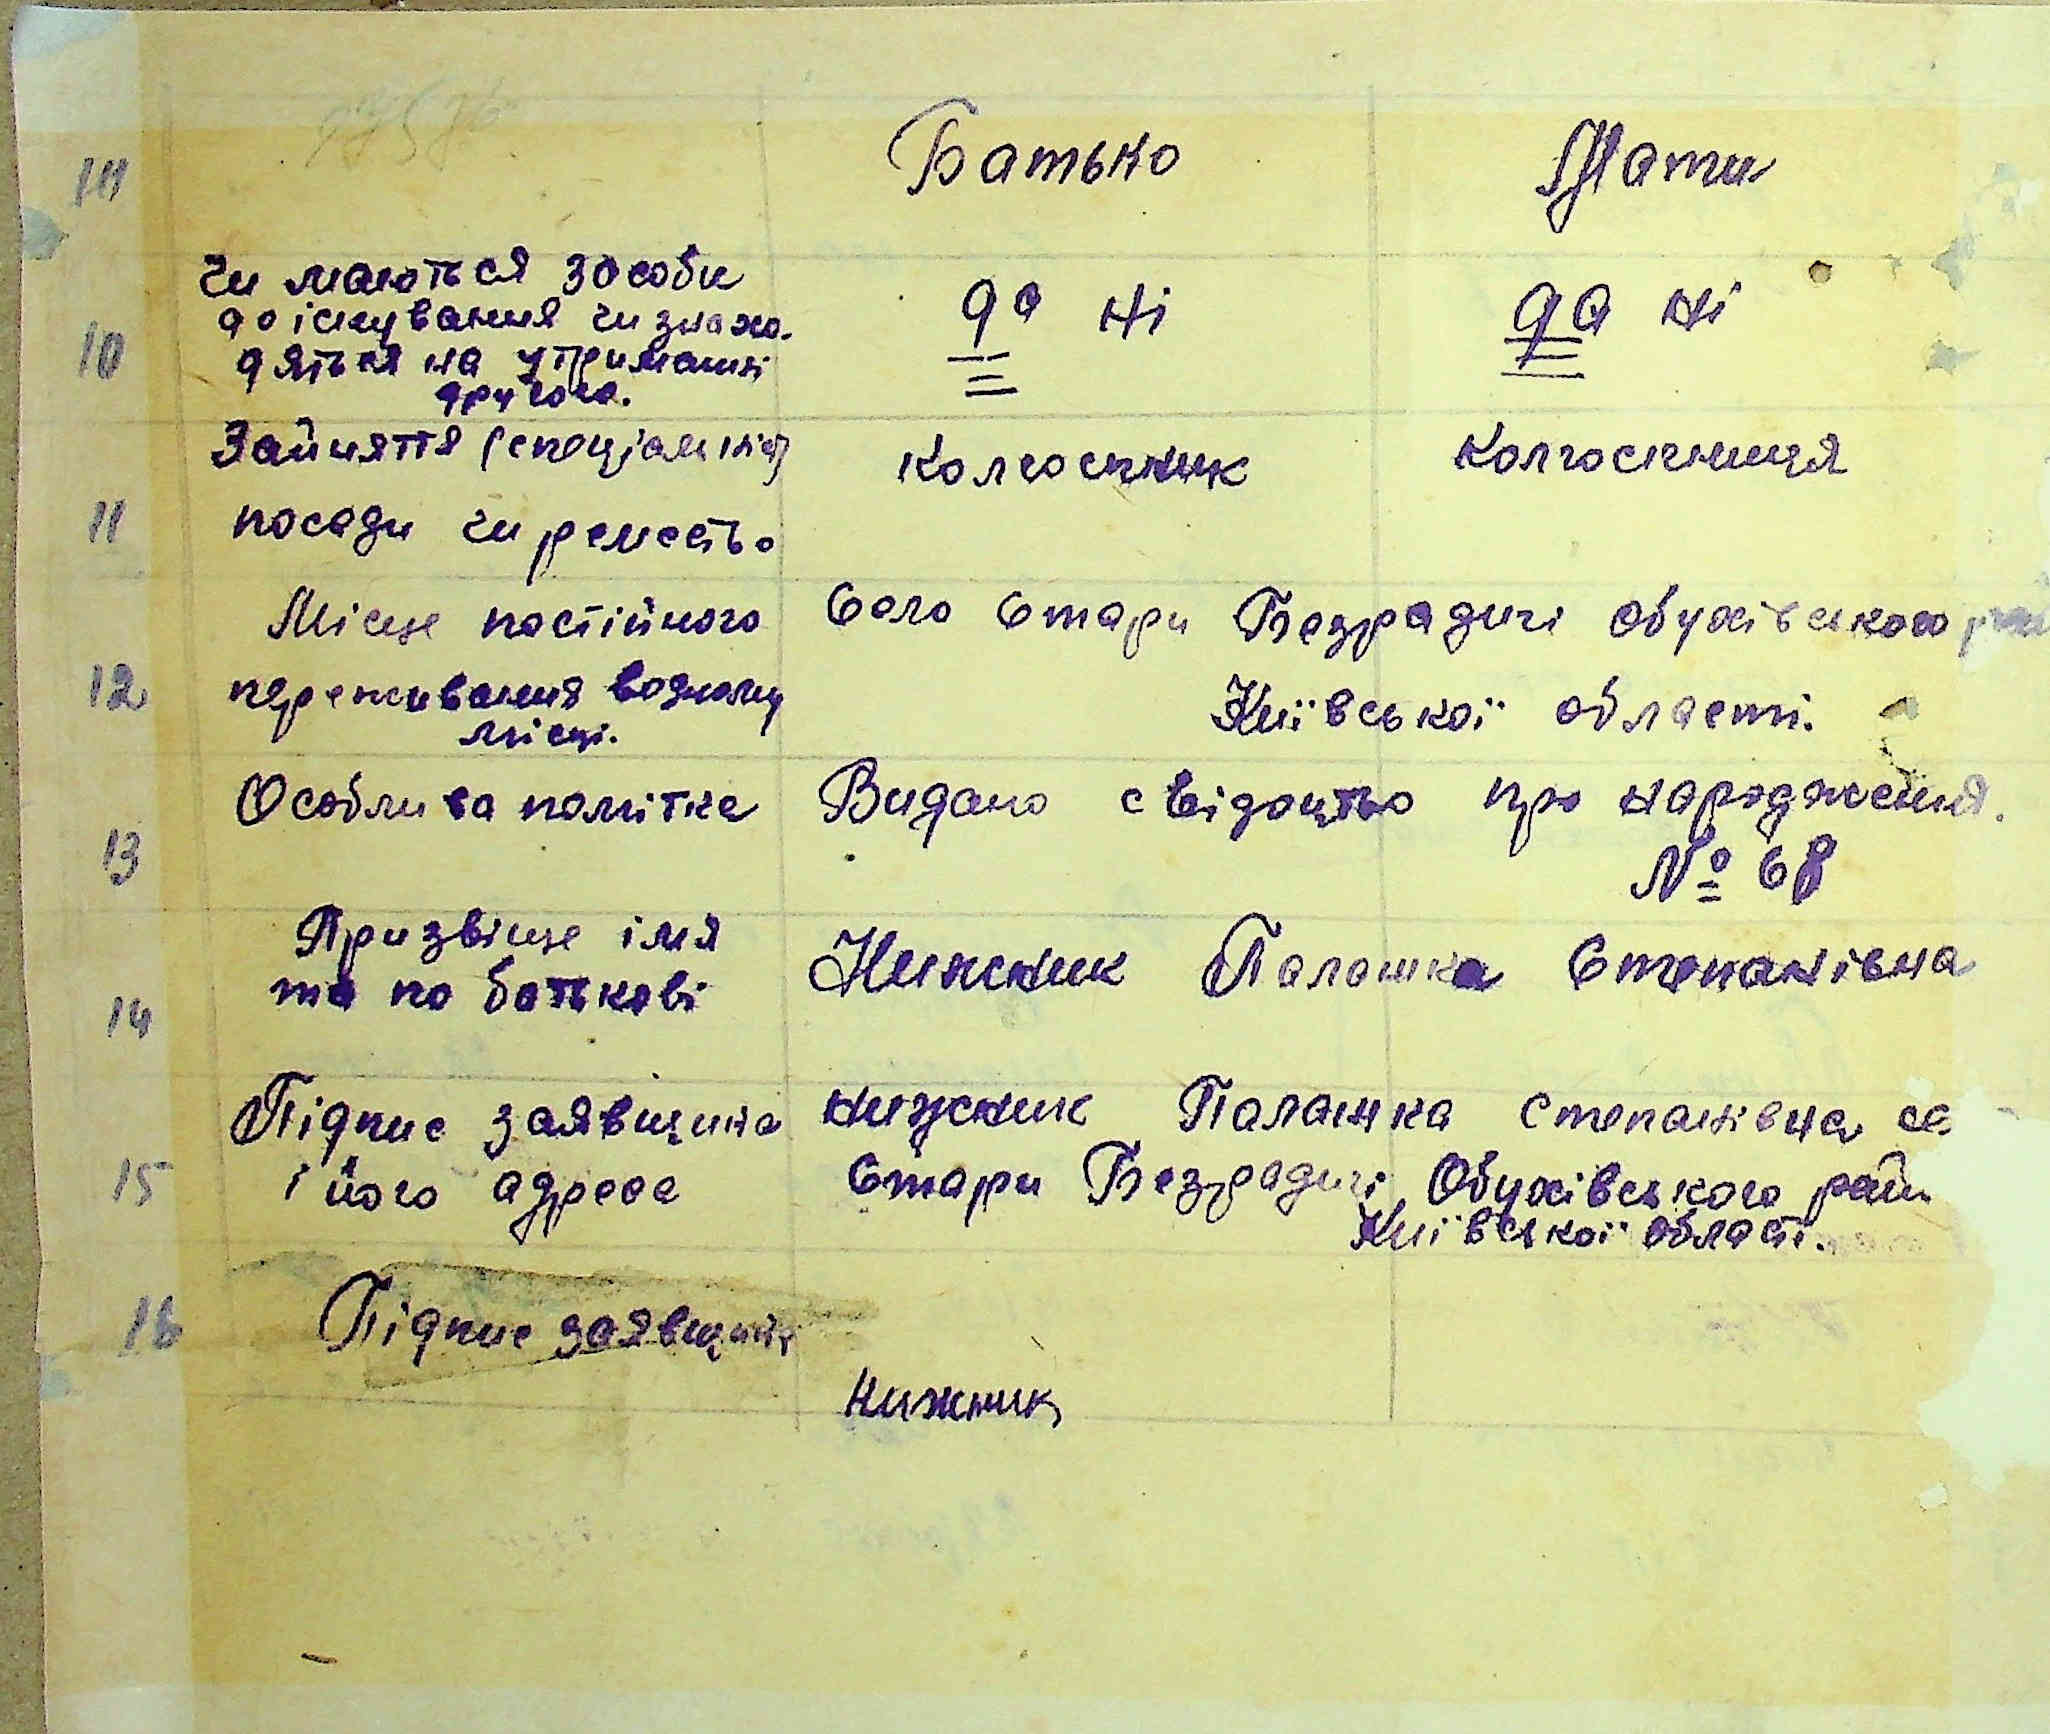 Батько Мати
Чи маються засоби
до існування чи знахо-
10 дяться на утриманні
другого.
да ні да ні
Зайняття (спеціальніст)
Колгоспник Колгоспниця
11 посади чи ремество
Місце постійного Село Стари Безрадичі Обухівського
12 переживання водному Київської області.
місці.
Особлива помітка Видано свідоцтво про народження.
13 № 68
Призвіще імя
та по батькові Нижник Палашка Степанівна
14
Підпис заявщика Нижник Палажка Степанівна с.
15 і його адреса Стари Безрадичі Обухівського рай.
Київської області.
16 Підпис заявщика
Нижник